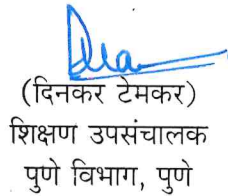 (दिनकर टेमकर)
शिक्षण उपसंचालक
पुणे विभाग, पुणे